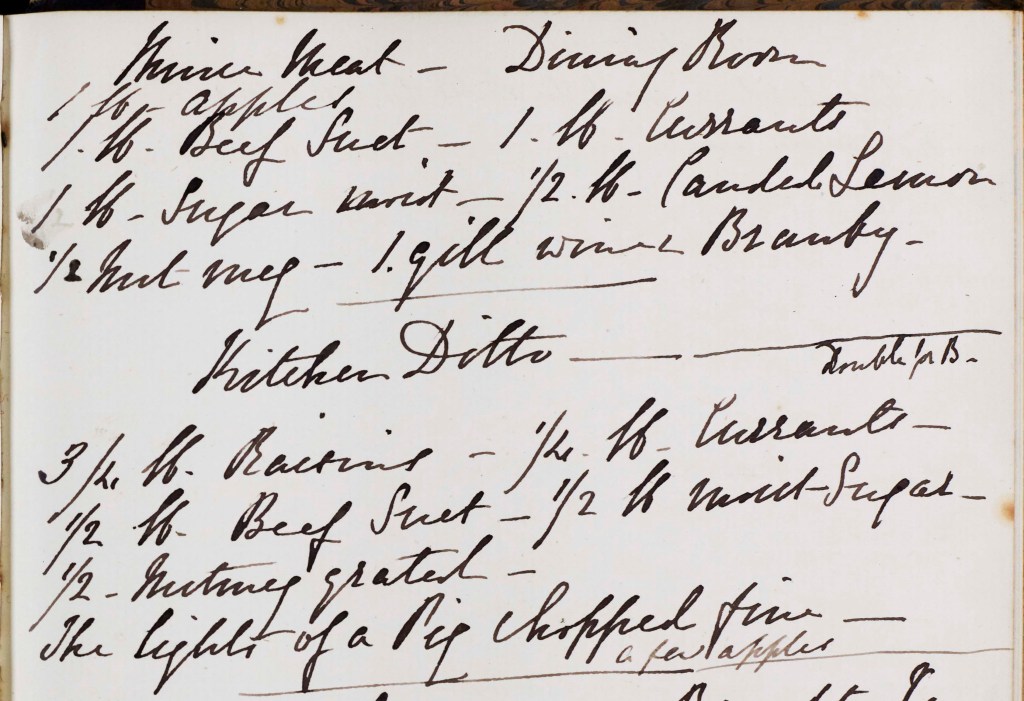 Mince Meat – Dining Room
1 lb – apples
1. lb. Beef Suet – 1. lb. Currants
1 lb – Sugar moist – 1/2. lb – Candied Lemon
1/2 Nut meg – 1. gill wine Brandy –
Kitchen Ditto
Double for B –
3/4 lb. Raisins – 1/4. lb. Currants –
1/2 lb. Beef Suet – 1/2 lb moist Sugar –
1/2 – Nutmeg grated –
The lights of a Pig chopped fine –
a few apples